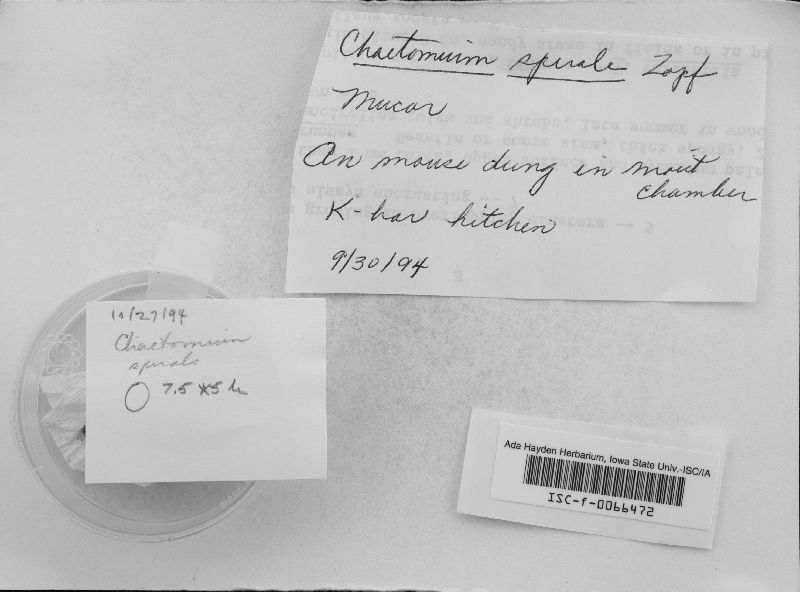 Chaetomium spirale Zopf
Mucor
On mouse dung in moist
chamber
K-bar kitchen
9/30/94
10/27/94
Chaetomium
spirale
7.5 x 5 µ
Ada Hayden Herbarium, Iowa State Univ.-ISC/IA
ISC-f-0066472